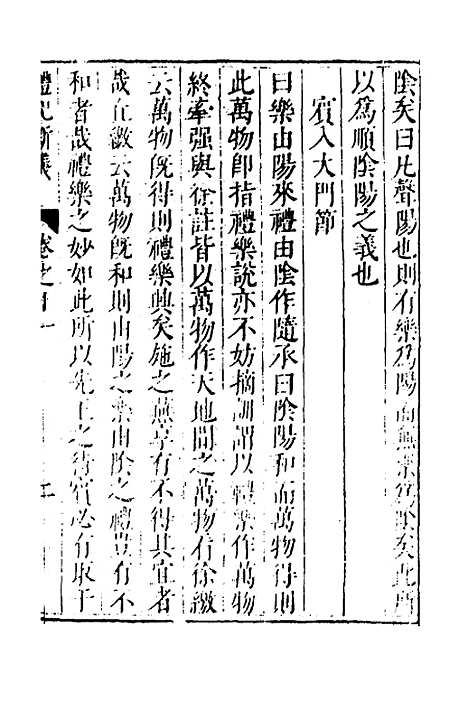 陰矣曰凡聲陽也則有樂爲陽而無樂爲陰矣此所
以爲順陰陽之義也
賓入大門節
曰樂由陽來禮由陰作隨承曰陰陽和而萬物得則
此萬物即指禮樂說亦不妨摘訓謂以禮樂作萬物
終牽强與徐註皆以萬物作天地間之萬物看徐繳
云萬物旣得則禮樂興矣施之燕享有不得其宜者
哉丘繳云萬物旣和則由陽之樂由陰之禮豈有不
和者哉禮樂之妙如此所以先王之待賓必有取于
禮記新義 卷之十一